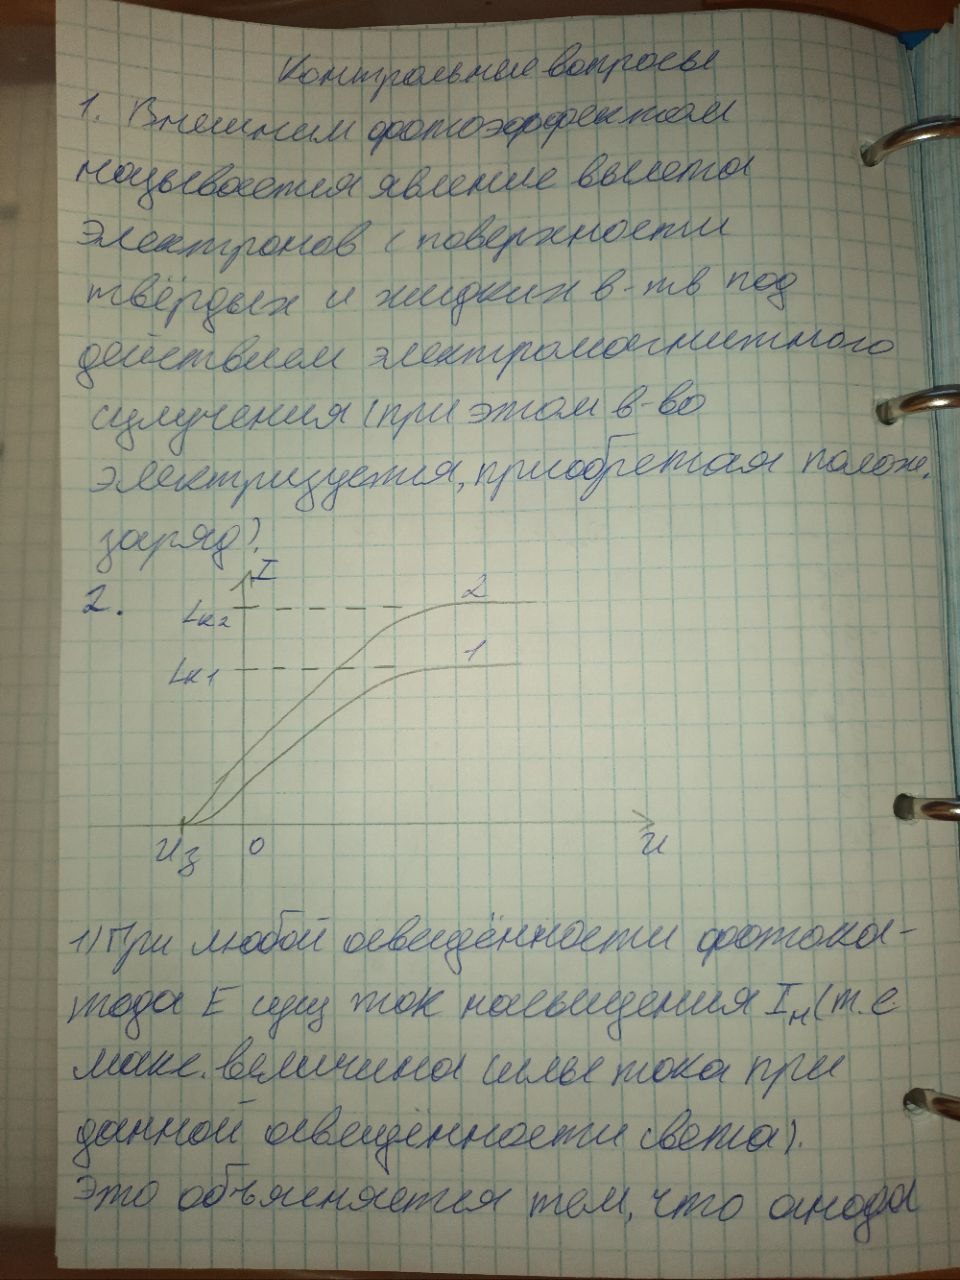 Контрольные вопросы
1. Внешним фотоэффектом
называется явление вылета
электронов с поверхности
твёрдых и жидких в-тв под
действием электромагнитного
излучения (при этом в-во
электризуется, приобретая полож.
заряд).
2.
I
Iн2
2
Iн1
1
Uз 0 U
1) При любой освещённости фотока-
тода E сущ ток насыщения Iн (т.е
макс. величина силы тока при
данной освещённости света).
Это объясняется тем, что анода